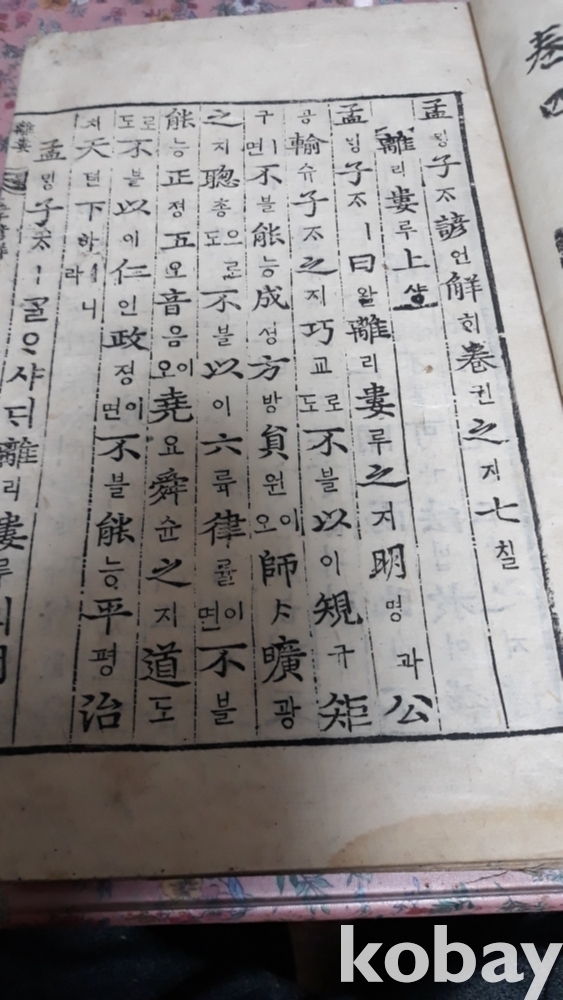 卷四
孟밍子ᄌᆞ諺언解ᄒᆡ卷권之지七칠
離리婁루上샹
孟밍子ᄌᆞㅣ曰왈離리婁루之지明명과公
공輸슈子ᄌᆞ之지巧교로도不불以이規규矩
구ㅣ면不불能능成셩方방員원이오師ᄉᆞ曠광
之지聰총으로도不불以이六륙律률이면不불
能능正졍五오音음이오堯요舜슌之지道도
로도不불以이仁인政졍이면不불能능平평治
치天텬下하ㅣ니라
孟밍子ᄌᆞㅣᄀᆞᆯᄋᆞ샤ᄃᆡ離리婁루의明
離婁
kobay